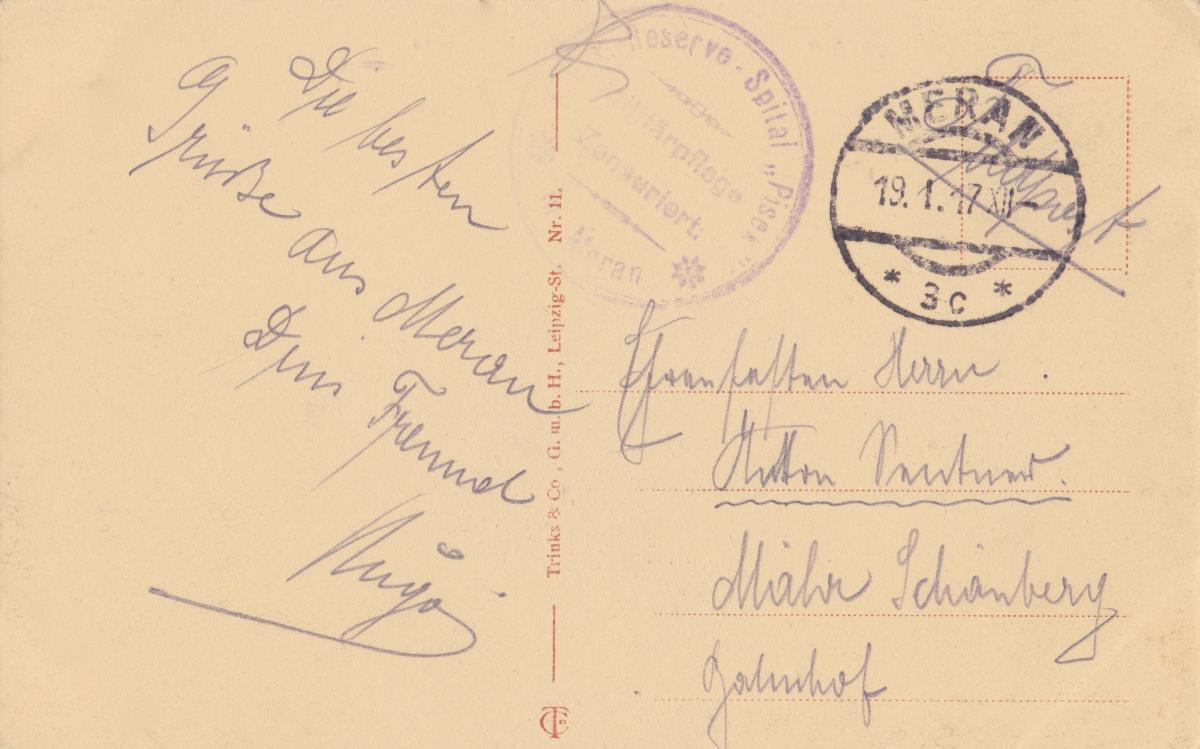 Die besten
Grüße aus Meran
Dein Freund
Hugo
Trinks & Co., G. m. b. H., Leipzig-St. Nr. 11.
Reserve-Spital „Pisek“
Militärpflege
Zensuriert:
Meran
MERAN
19.1.17 XII
* 3c *
Herrn
Anton Sentner.
Mähr Schönberg
Bahnhof